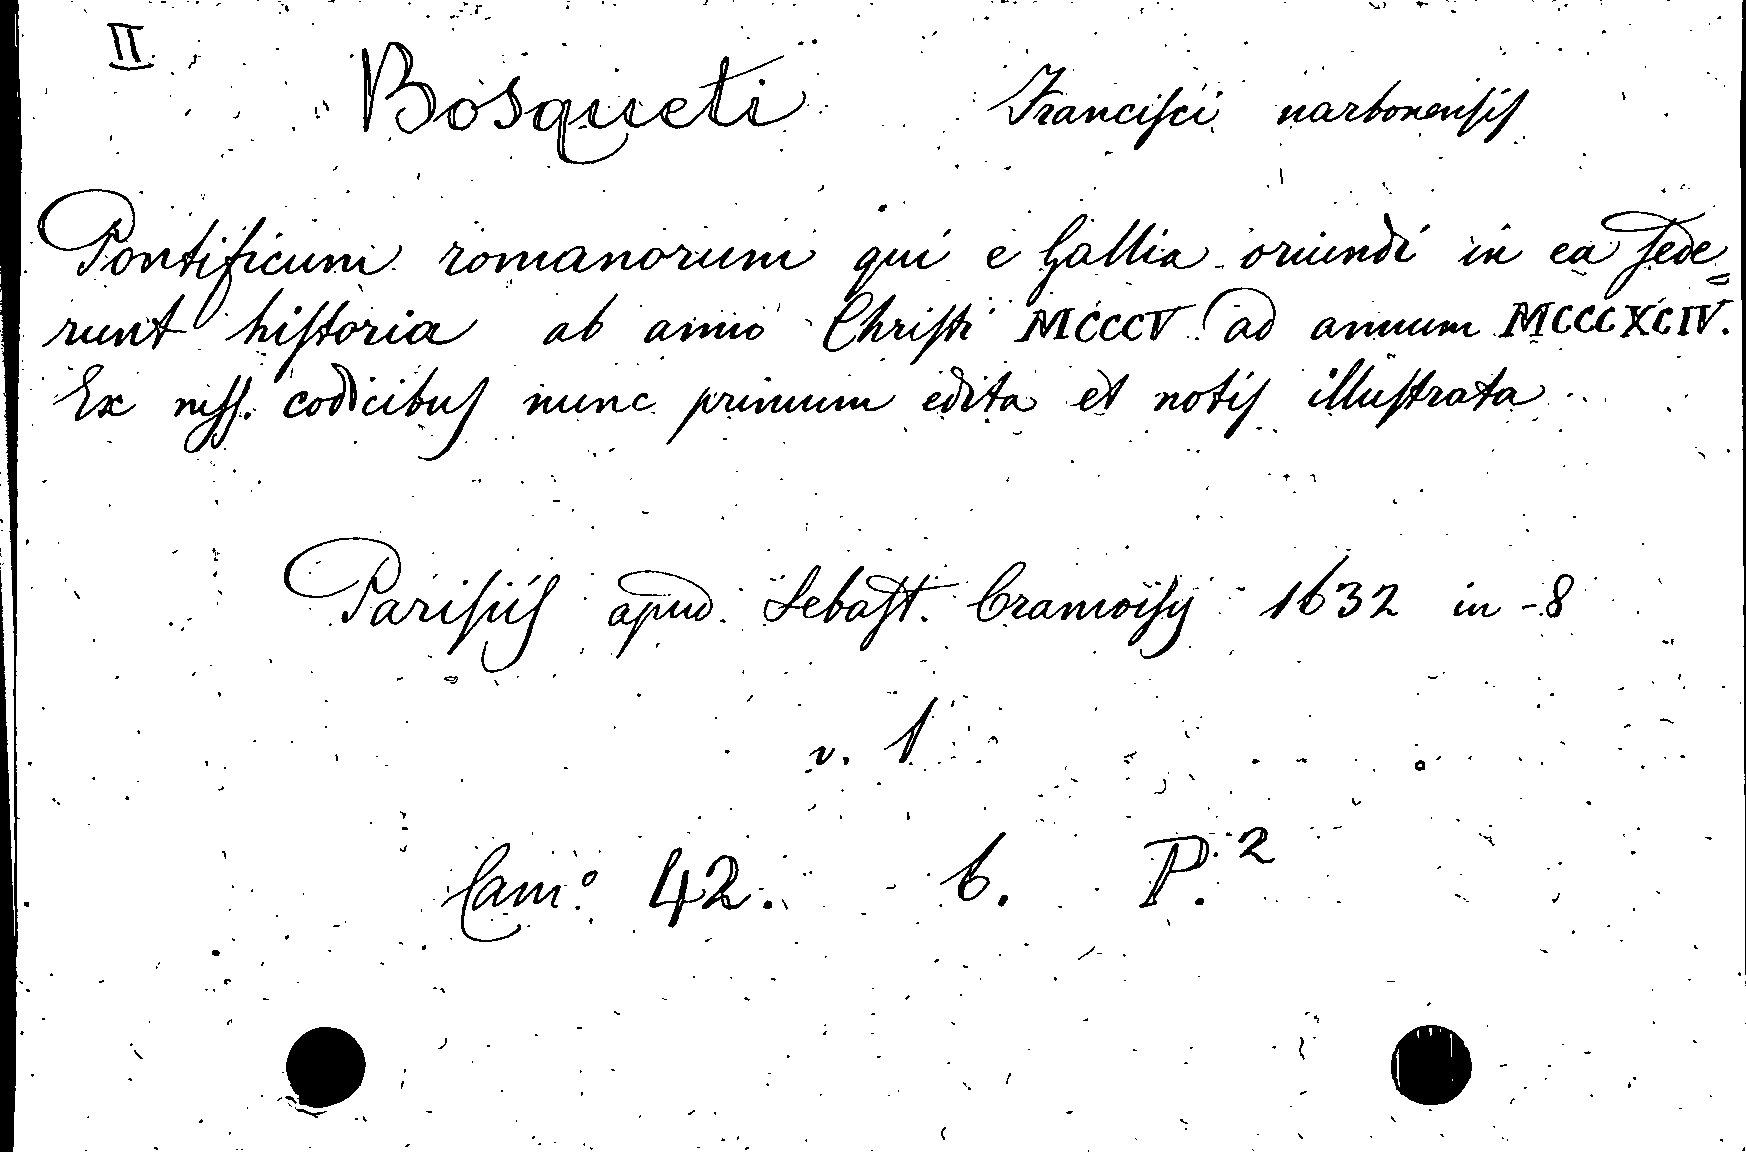 II
Bosqueti Franciſci narbonenſis
Pontificum romanorum qui e Gallia oriundi in ea ſede=
runt hiſtoria ab anno Chriſti MCCCV ad annum MCCCXCIV.
Ex mſſ. codicibus nunc primum edita et notis illuſtrata
Pariſiis apud. Sebaſt. Cramoiſy 1632 in -8
v. 1
Cam.º 42. 6. P.²